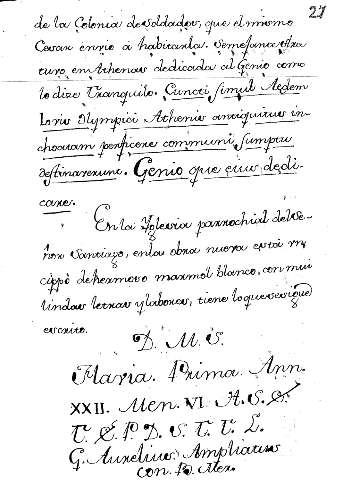 27
de la Colonia de Soldados, que el mismo
Cesar envio á habitarla. Semejante Estatura
turo en Athenas dedicada al Genio como
lo dize Tranquilo. Cuncti simul Aedem
Iovis Olympici Athenis antiquitus in-
choatam perficere communi sumptu
destinaverunt. Genio que eius dedi-
care.
En la Yglesia parrochial de Se-
ñor Santiago, en la obra nueva está un
cippo de hermoso marmol blanco, con mui
lindas letras y labores, tiene lo que se sigue
escrito.
D. M. S.
Flavia. Prima Ann.
XXII. Men. VI H. S. S.
T. E. P. D. S. T. T. L.
G. Aurelius Ampliatus
con. D. Mer.